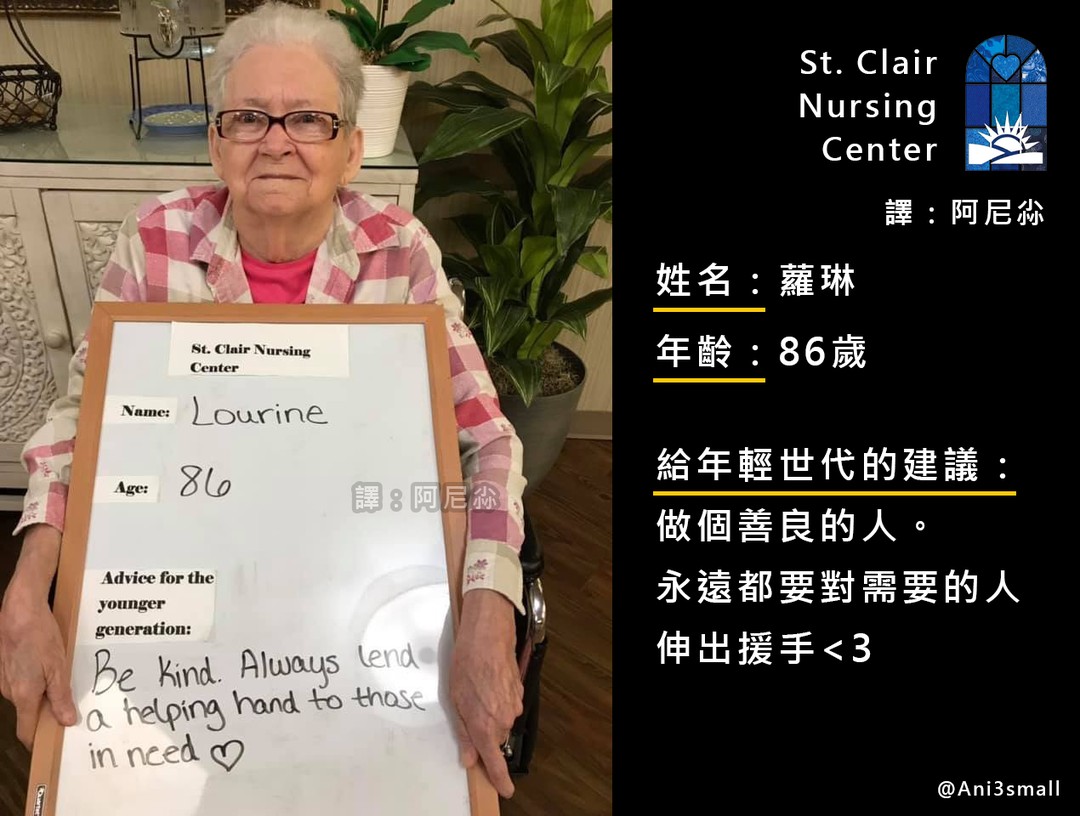 St. Clair Nursing
Center
Name: Lourine
Age: 86
譯：阿尼尛
Advice for the
younger
generation:
Be Kind. Always lend
a helping hand to those
in need ♡
St. Clair
Nursing
Center
譯：阿尼尛
姓名：蘿琳
年齡：86歲
給年輕世代的建議：
做個善良的人。
永遠都要對需要的人
伸出援手<3
@Ani3small